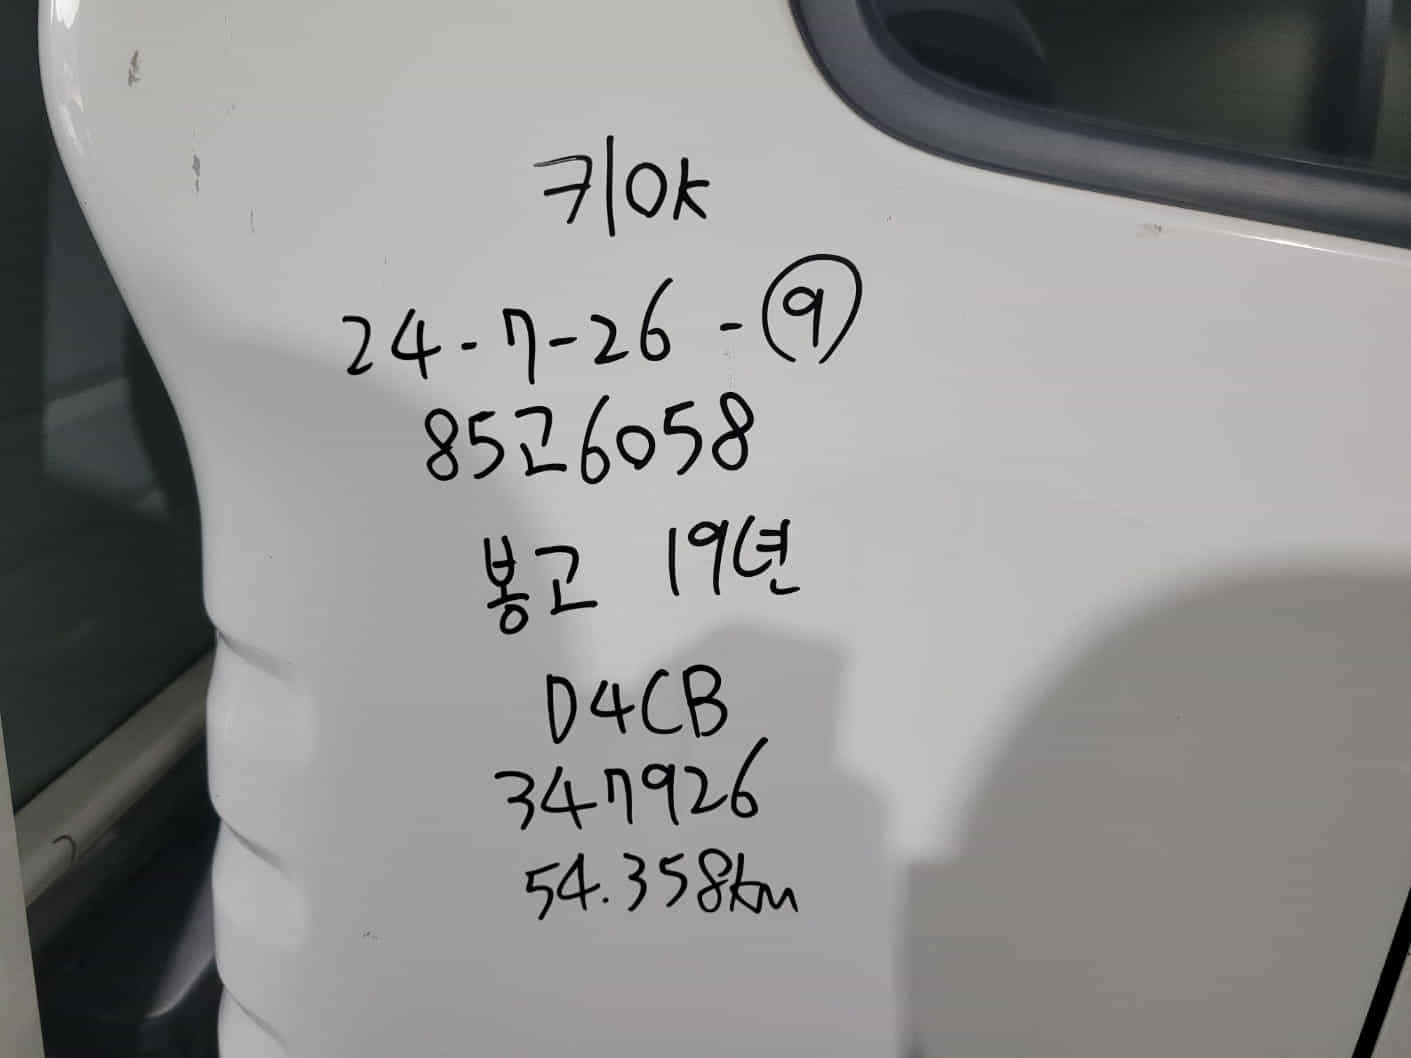 키OK
24-7-26-⑨
85고6058
봉고 19년
D4CB
347926
54.358km